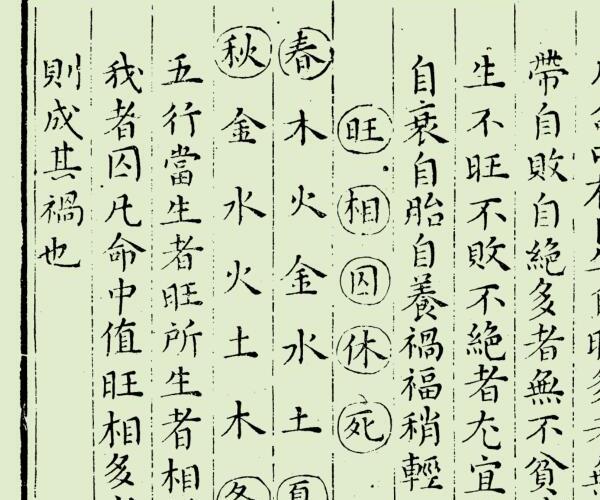 帶自敗自絕多者無不貧
生不旺不敗不絕者尤宜
自衰自胎自養禍福稍輕
旺相囚休死
春木火金水土夏
秋金水火土木冬
五行當生者旺所生者相
我者囚凡命中值旺相多
則成其禍也